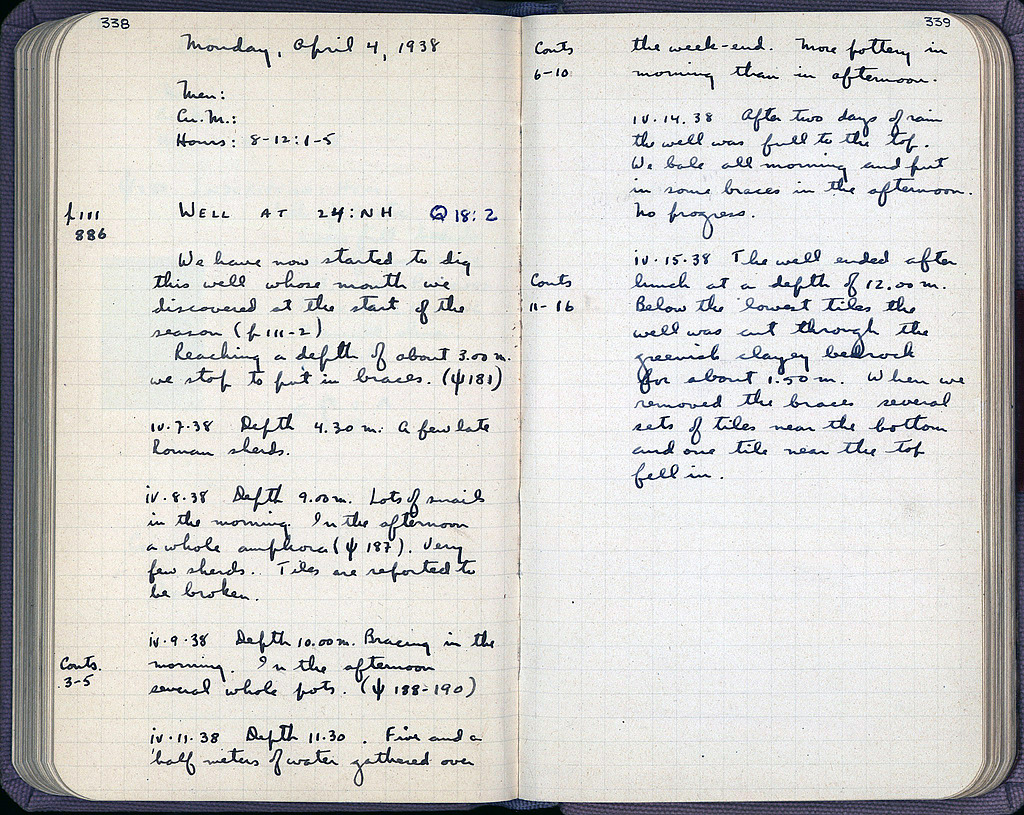 338
Monday, April 4, 1938
Men:
Cu. M.:
Hours: 8-12:1-5
p 111
886
WELL AT 24:NH Q 18:2
We have now started to dig
this well whose mouth we
discovered at the start of the
season (p 111-2)
Reaching a depth of about 3.00 m.
we stop to put in braces. (ψ 181)
iv.7.38 Depth 4.30 m. A few late
Roman sherds.
iv.8.38 Depth 9.00 m. Lots of snails
in the morning. In the afternoon
a whole amphora (ψ 187). Very
few sherds. Tiles are reported to
be broken.
Conts.
3-5
iv.9.38 Depth 10.00 m. Bracing in the
morning. In the afternoon
several whole pots. (ψ 188-190)
iv.11.38 Depth 11.30. Five and a
half meters of water gathered over
339
Conts
6-10
the week-end. More pottery in
morning than in afternoon.
iv.14.38 After two days of rain
the well was full to the top.
We bale all morning and put
in some braces in the afternoon.
No progress.
Conts
11-16
iv.15.38 The well ended after
lunch at a depth of 12.00 m.
Below the lowest tiles the
well was cut through the
greenish clayey bedrock
for about 1.50 m. When we
removed the braces several
sets of tiles near the bottom
and one tile near the top
fell in.